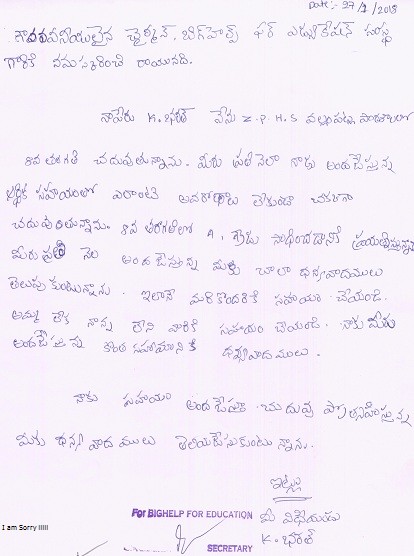 Date:- 27/2/2018
గౌరవనీయులైన ఛైర్మన్. బిగ్‌హెల్ప్ ఫర్ ఎడ్యుకేషన్ సంస్థ
గారికి నమస్కరించి రాయునది.
నాపేరు K. భరత్ నేను Z.P.H.S పాఠశాలలో
8వ తరగతి చదువుతున్నాను. మీరు ప్రతి నెలా నాకు అందజేస్తున్న
ఆర్థిక సహాయంతో ఎలాంటి అవరోధాలు లేకుండా చక్కగా
చదువుతున్నాను. 8వ తరగతిలో A. గ్రేడు సాధించడానికి ప్రయత్నిస్తున్నాను
మీరు ప్రతి నెల అందజేస్తున్న మీకు చాలా ధన్యవాదములు
తెలుపుకుంటున్నాను. ఇలానే మరికొందరికి సహాయం చేయండి.
అమ్మ లేక నాన్న లేని వారికి సహాయం చేయండి. నాకు మీరు
అందజేస్తున్న కొంత సహాయానికి ధన్యవాదములు.
నాకు సహాయం అందజేస్తూ చదువు ప్రోత్సహిస్తున్న
మీకు ధన్యవాదములు తెలియజేసుకుంటున్నాను.
ఇట్లు
మీ విధేయుడు
K. భరత్
For BIGHELP FOR EDUCATION
SECRETARY
I am Sorry !!!!!